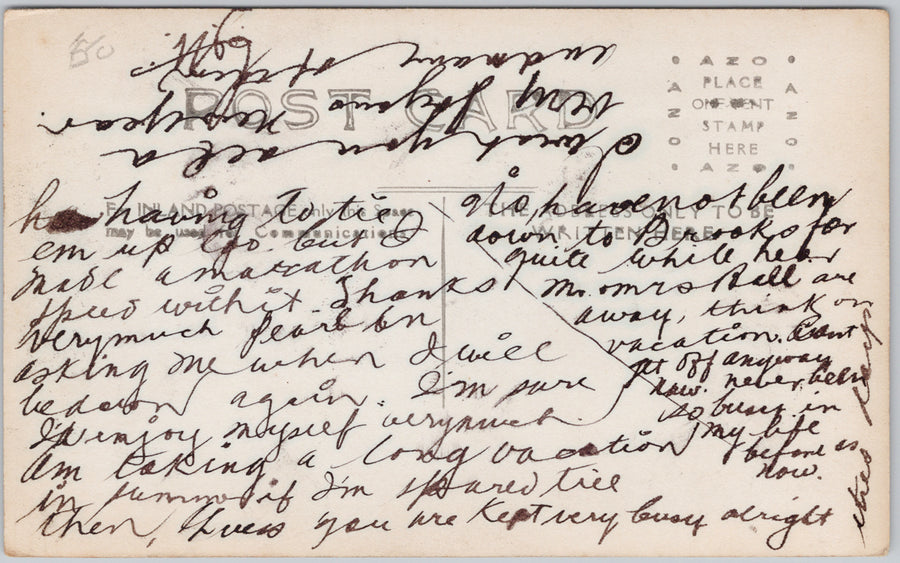 50
I wish you all a
very Joyous New year
and many of them
POST CARD
AZO
PLACE
ONE CENT
STAMP
HERE
AZO
FOR INLAND POSTAGE only this Space
may be used for Communications
THE ADDRESS ONLY TO BE
WRITTEN HERE
having to tie
em up so but I
made a marathon
speed with it. Thanks
verymuch Pearl for
asking me when I will
be down again. I'm sure
I'll enjoy myself verymuch.
Am taking a long vacation
in summer if I'm spared till
then, Guess you are kept very busy alright
these days
have not been
down to Brooks for
quite while hear
Mr. & mrs Hall are
away, think on
vacation. Cant
get off anyway
now. never been
so busy in
my life
before as
now.